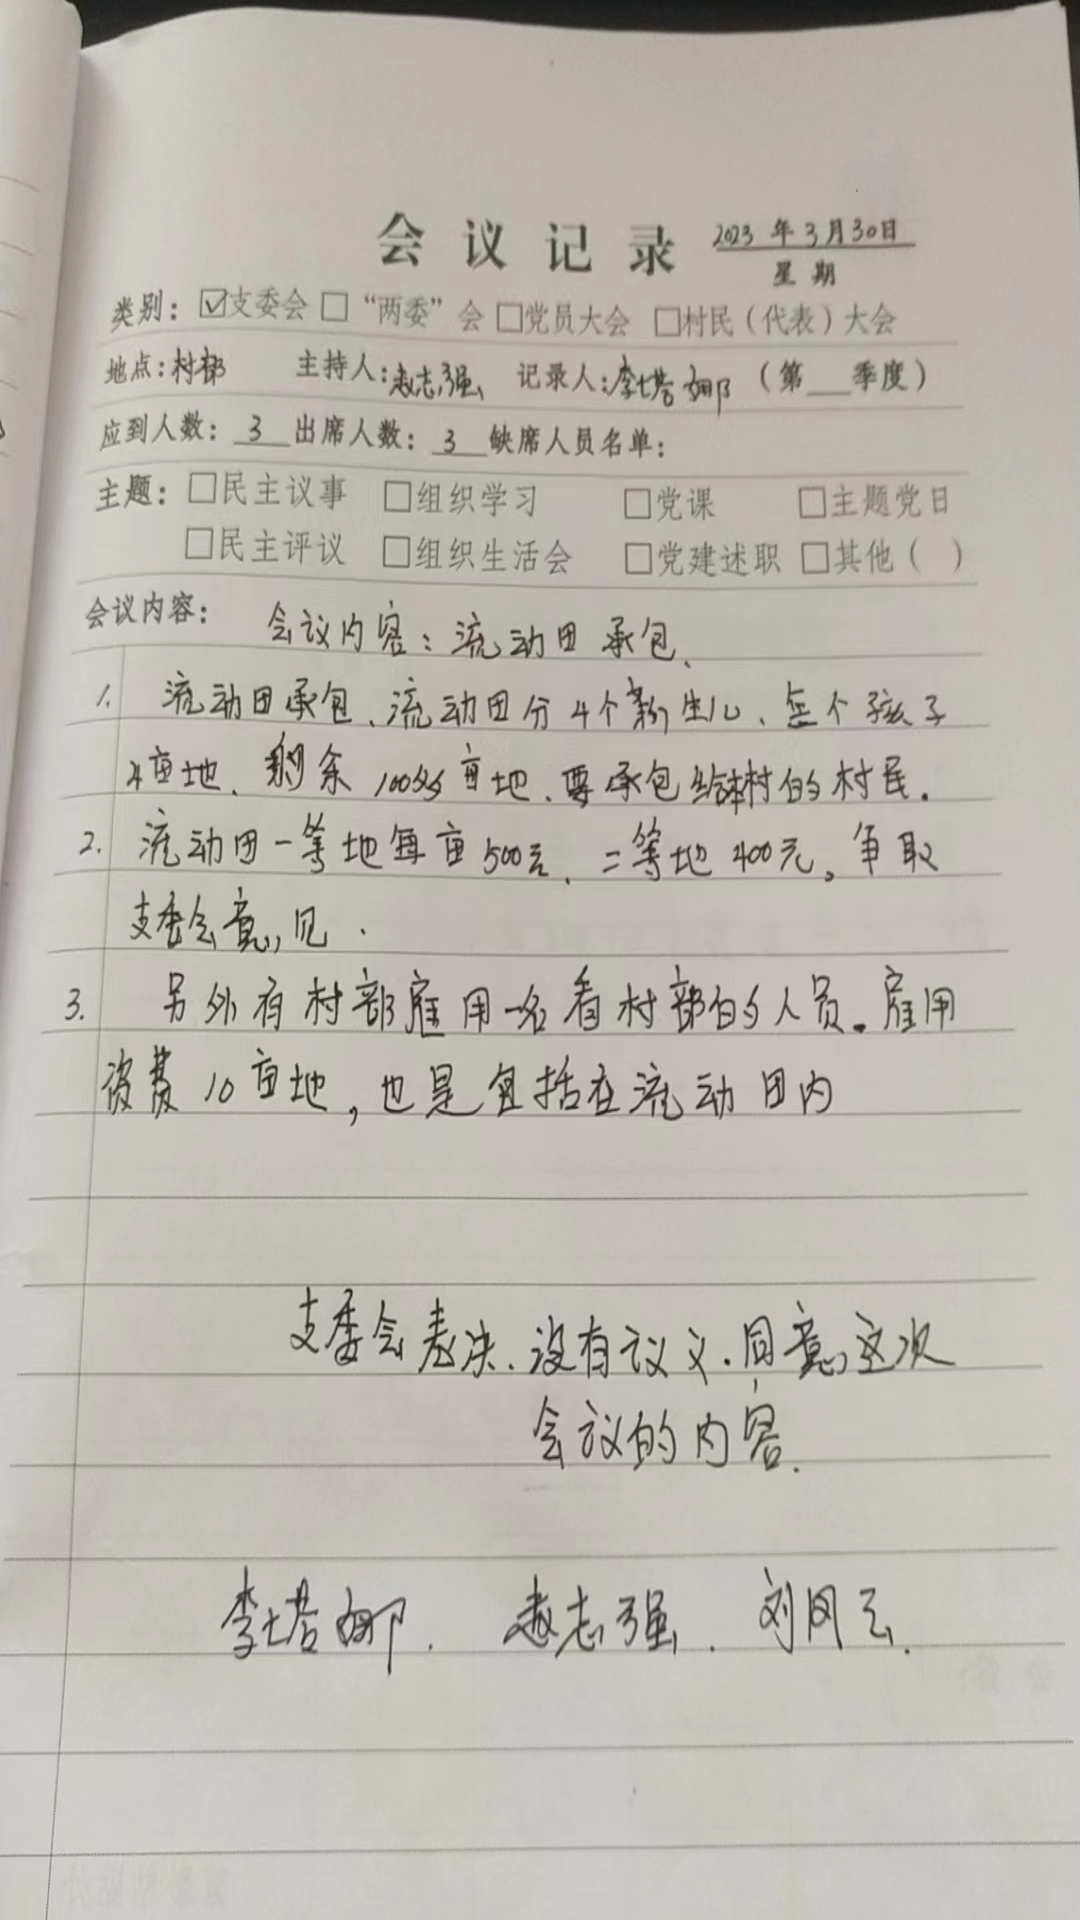 会议记录 2023年3月30日
星期
类别：☑支委会 □“两委”会 □党员大会 □村民（代表）大会
地点：村部 主持人：赵志强 记录人：李塔娜（第__季度）
应到人数：3 出席人数：3 缺席人员名单：
主题：□民主议事 □组织学习 □党课 □主题党日
□民主评议 □组织生活会 □党建述职 □其他（ ）
会议内容： 会议内容：流动田承包、
1、流动田承包、流动田分4个新生儿、每个孩子
4亩地、剩余100多亩地、要承包给本村的村民。
2. 流动田一等地每亩500元、二等地400元。争取
支委会意见.
3. 另外有村部雇用一名看村部的人员。雇用
资费10亩地，也是包括在流动田内
支委会表决、没有议义.同意这次
会议的内容.
李塔娜. 赵志强. 刘风云.